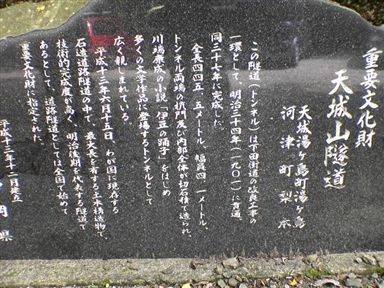 重要文化財
天城山隧道
天城湯ヶ島町湯ヶ島
河津町梨本
この隧道（トンネル）は下田街道の改良工事の
一環として、明治三十四年（一九〇一）に貫通、
同三十七年に完成した。
全長四四五・五メートル、幅員四・一メートル、
トンネル両端の坑門及び内部全体が切石積で造られ、
川端康成の小説「伊豆の踊子」をはじめ
多くの文学作品に登場するトンネルとして
広く親しまれている。
平成十三年六月十五日、わが国に現存する
石造道路隧道の中で、最大長を有する土木構造物で、
技術的完成度が高く、明治後期を代表する隧道で
あるとして、道路隧道としては全国で始めて
重要文化財に指定された。
平成十三年十二月建立
県